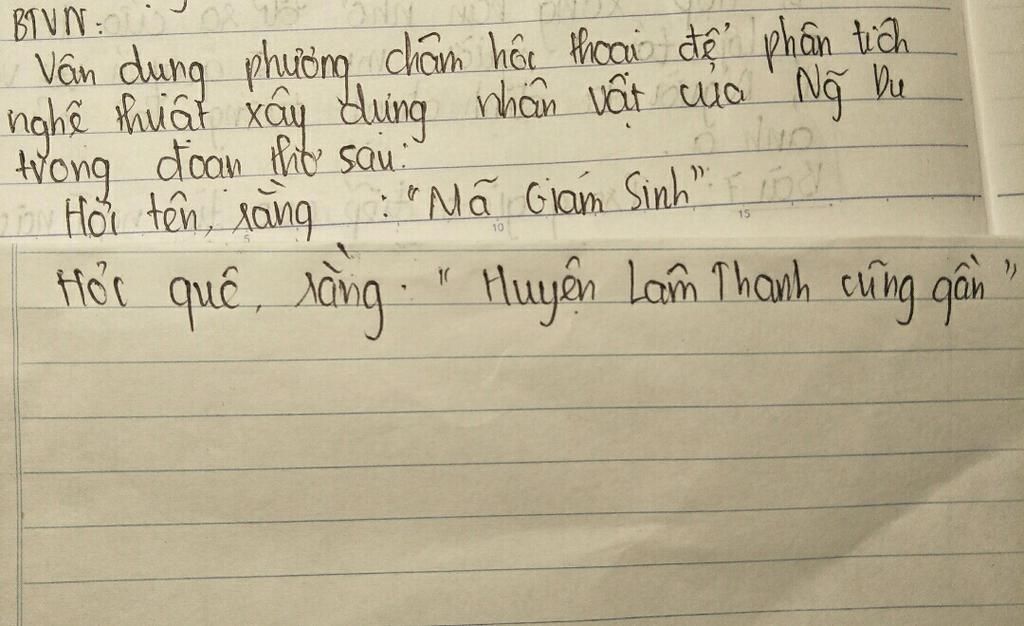 BTVN:
Vân dung phương châm hôc thoai để phân tích
nghệ thuât xây dựng nhân vật của Ng~ Du
trong đoan thơ sau:
Hỏi tên, rằng : "Mã Giám Sinh"
Hỏi quê, rằng. " Huyện Lâm Thanh cũng gần "